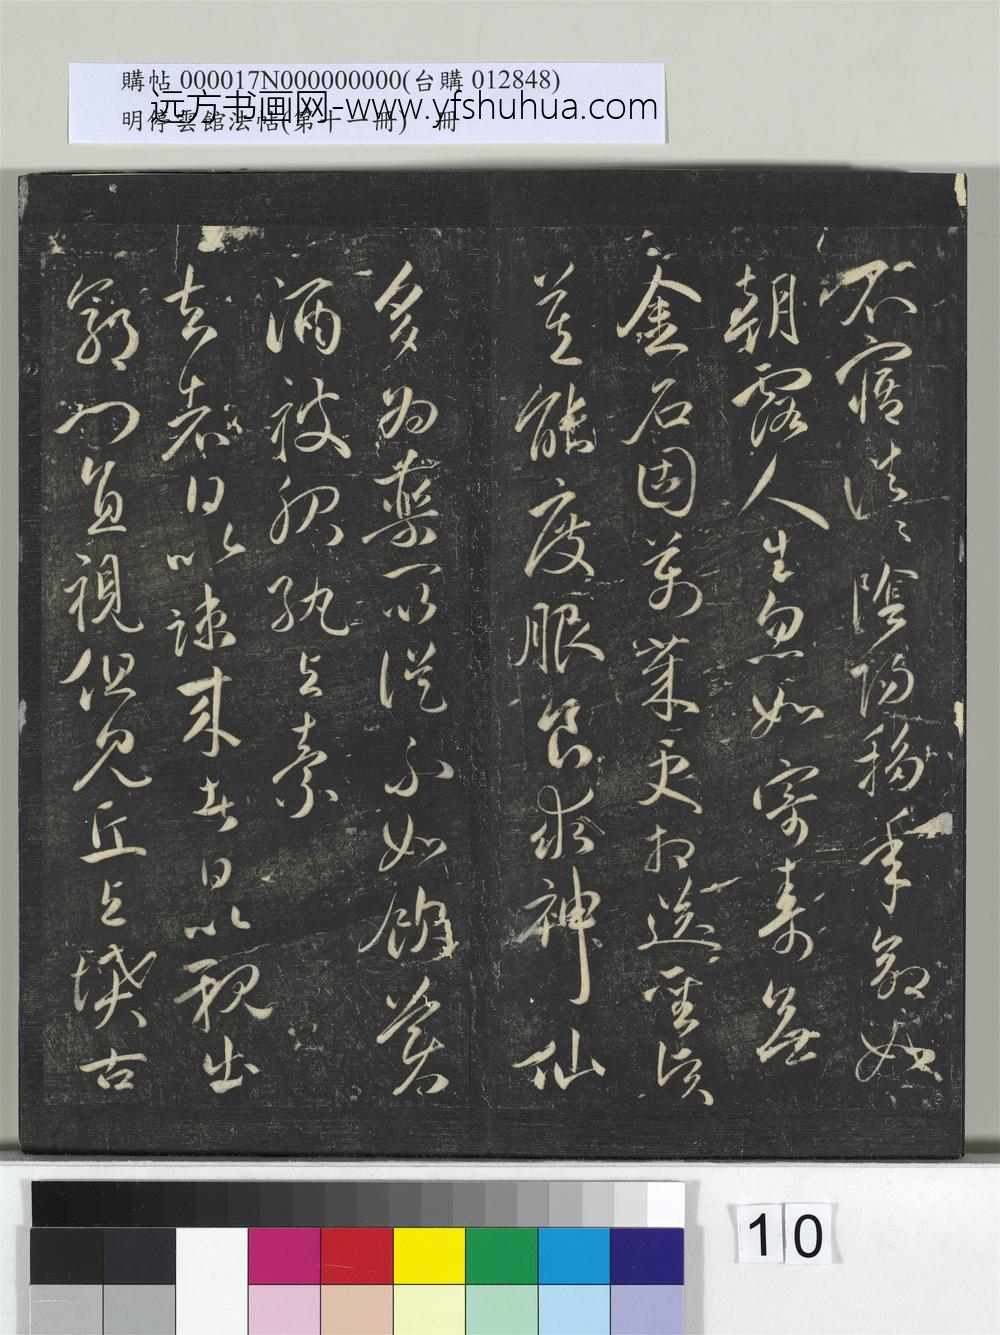 購帖 000017N000000000(台購 012848)
远方书画网-www.yfshuhua.com
明停雲館法帖(第十一冊) 冊
不寤浩〻陰陽移年命如
朝露人生忽如寄壽無
金石固萬歲更相送聖賢
莫能度服食求神仙
多為藥所誤不如飲美
酒被服紈與素
去者日以疎來者日以親出
郭門直視但見丘與墳古
10